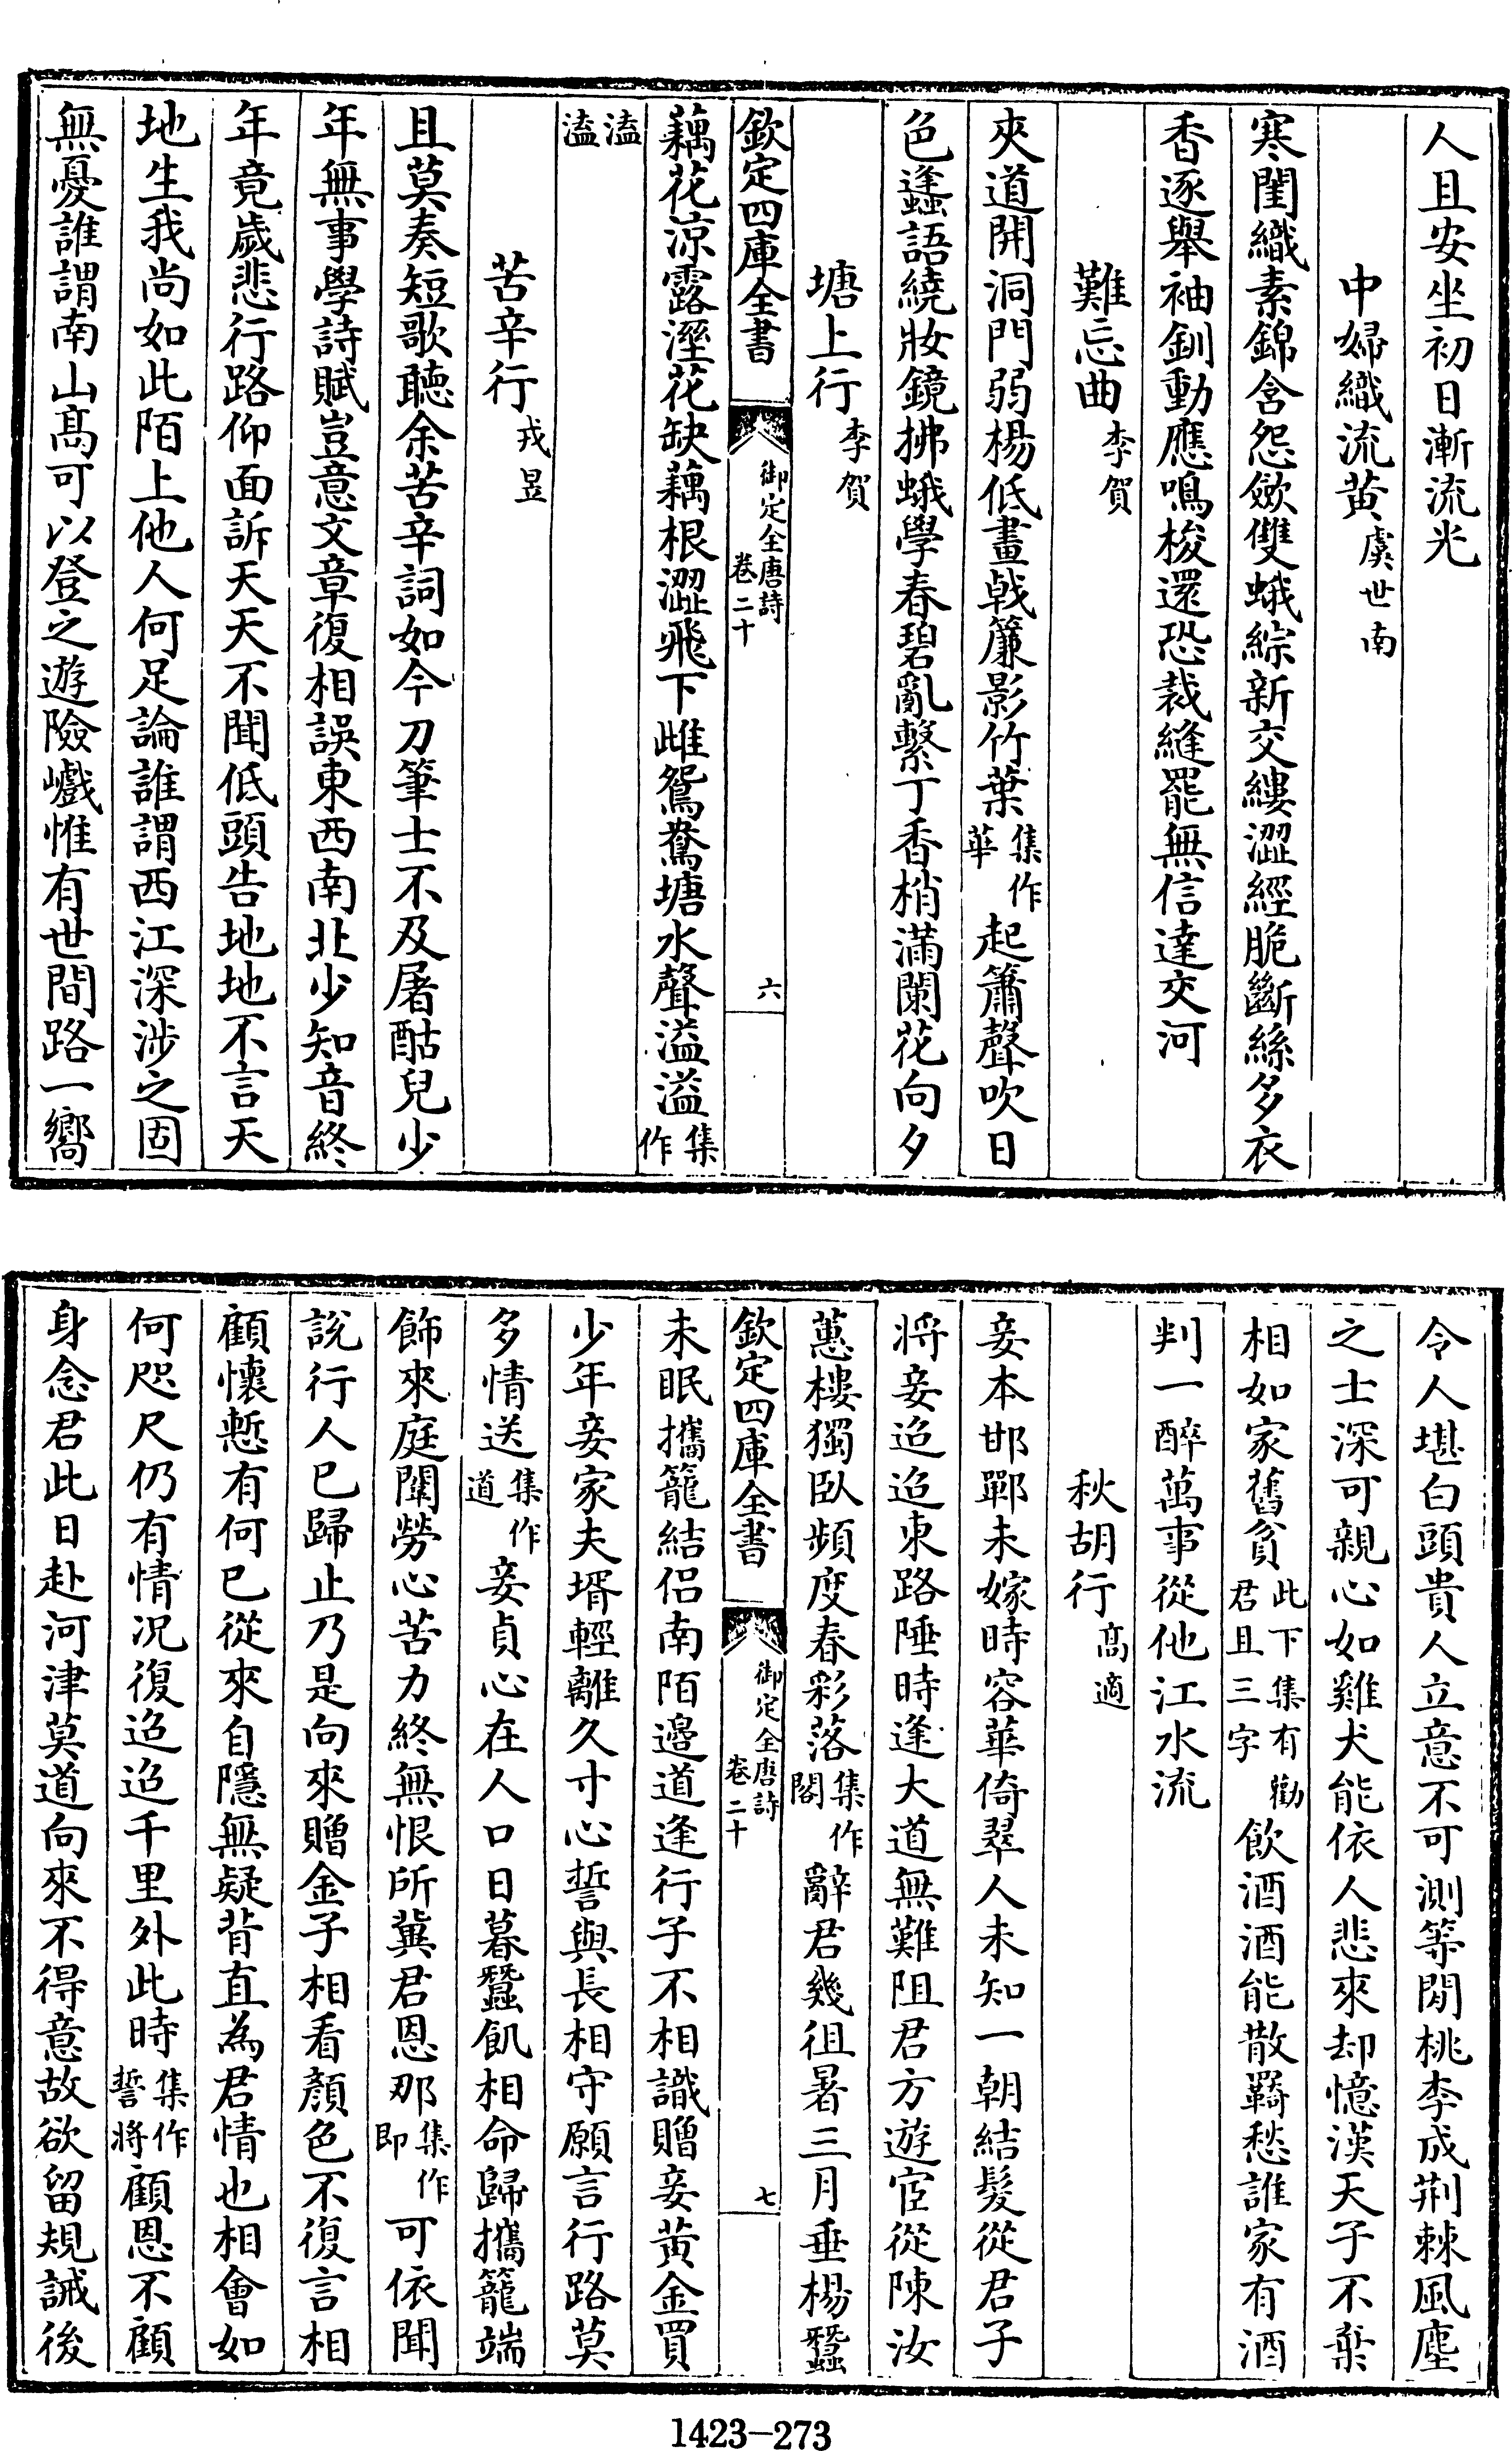 人且安坐初日漸流光
中婦織流黄虞世南
寒閨織素錦含怨歛雙蛾綜新交縷澀經脆斷絲多衣
香逐舉袖釧動應鳴梭還恐裁縫罷無信達交河
難忘曲李賀
夾道開洞門弱楊低畫戟簾影竹葉集作華起簫聲吹日
色蜂語繞妝鏡拂蛾學春碧亂繫丁香梢滿闌花向夕
塘上行李賀
欽定四庫全書 御定全唐詩卷二十 六
藕花涼露溼花缺藕根澀飛下雌鴛鴦塘水聲溢溢集作
溘溘
苦辛行戎昱
且莫奏短歌聽余苦辛詞如今刀筆士不及屠酤兒少
年無事學詩賦豈意文章復相誤東西南北少知音終
年竟歲悲行路仰面訴天天不聞低頭告地地不言天
地生我尚如此陌上他人何足論誰謂西江深涉之固
無憂誰謂南山髙可以登之遊險巇惟有世間路一嚮
令人堪白頭貴人立意不可測等閒桃李成荆棘風塵
之士深可親心如雞犬能依人悲來却憶漢天子不棄
相如家舊貧此下集有勸君且三字飲酒酒能散羇愁誰家有酒
判一醉萬事從他江水流
秋胡行髙適
妾本邯鄲未嫁時容華倚翠人未知一朝結髮從君子
將妾迢迢東路陲時逢大道無難阻君方遊宦從陳汝
蕙樓獨卧頻度春彩落集作閣辭君幾徂暑三月垂楊蠶
欽定四庫全書 御定全唐詩卷二十 七
未眠攜籠結侣南陌邉道逢行子不相識贈妾黄金買
少年妾家夫壻輕離久寸心誓與長相守願言行路莫
多情送集作道妾貞心在人口日暮蠶飢相命歸攜籠端
飾來庭闈勞心苦力終無恨所冀君恩那集作即可依聞
説行人已歸止乃是向來贈金子相看顏色不復言相
顧懷慙有何已從來自隱無疑背直為君情也相會如
何咫尺仍有情況復迢迢千里外此時集作誓將顧恩不顧
身念君此日赴河津莫道向來不得意故欲留規誡後
1423-273